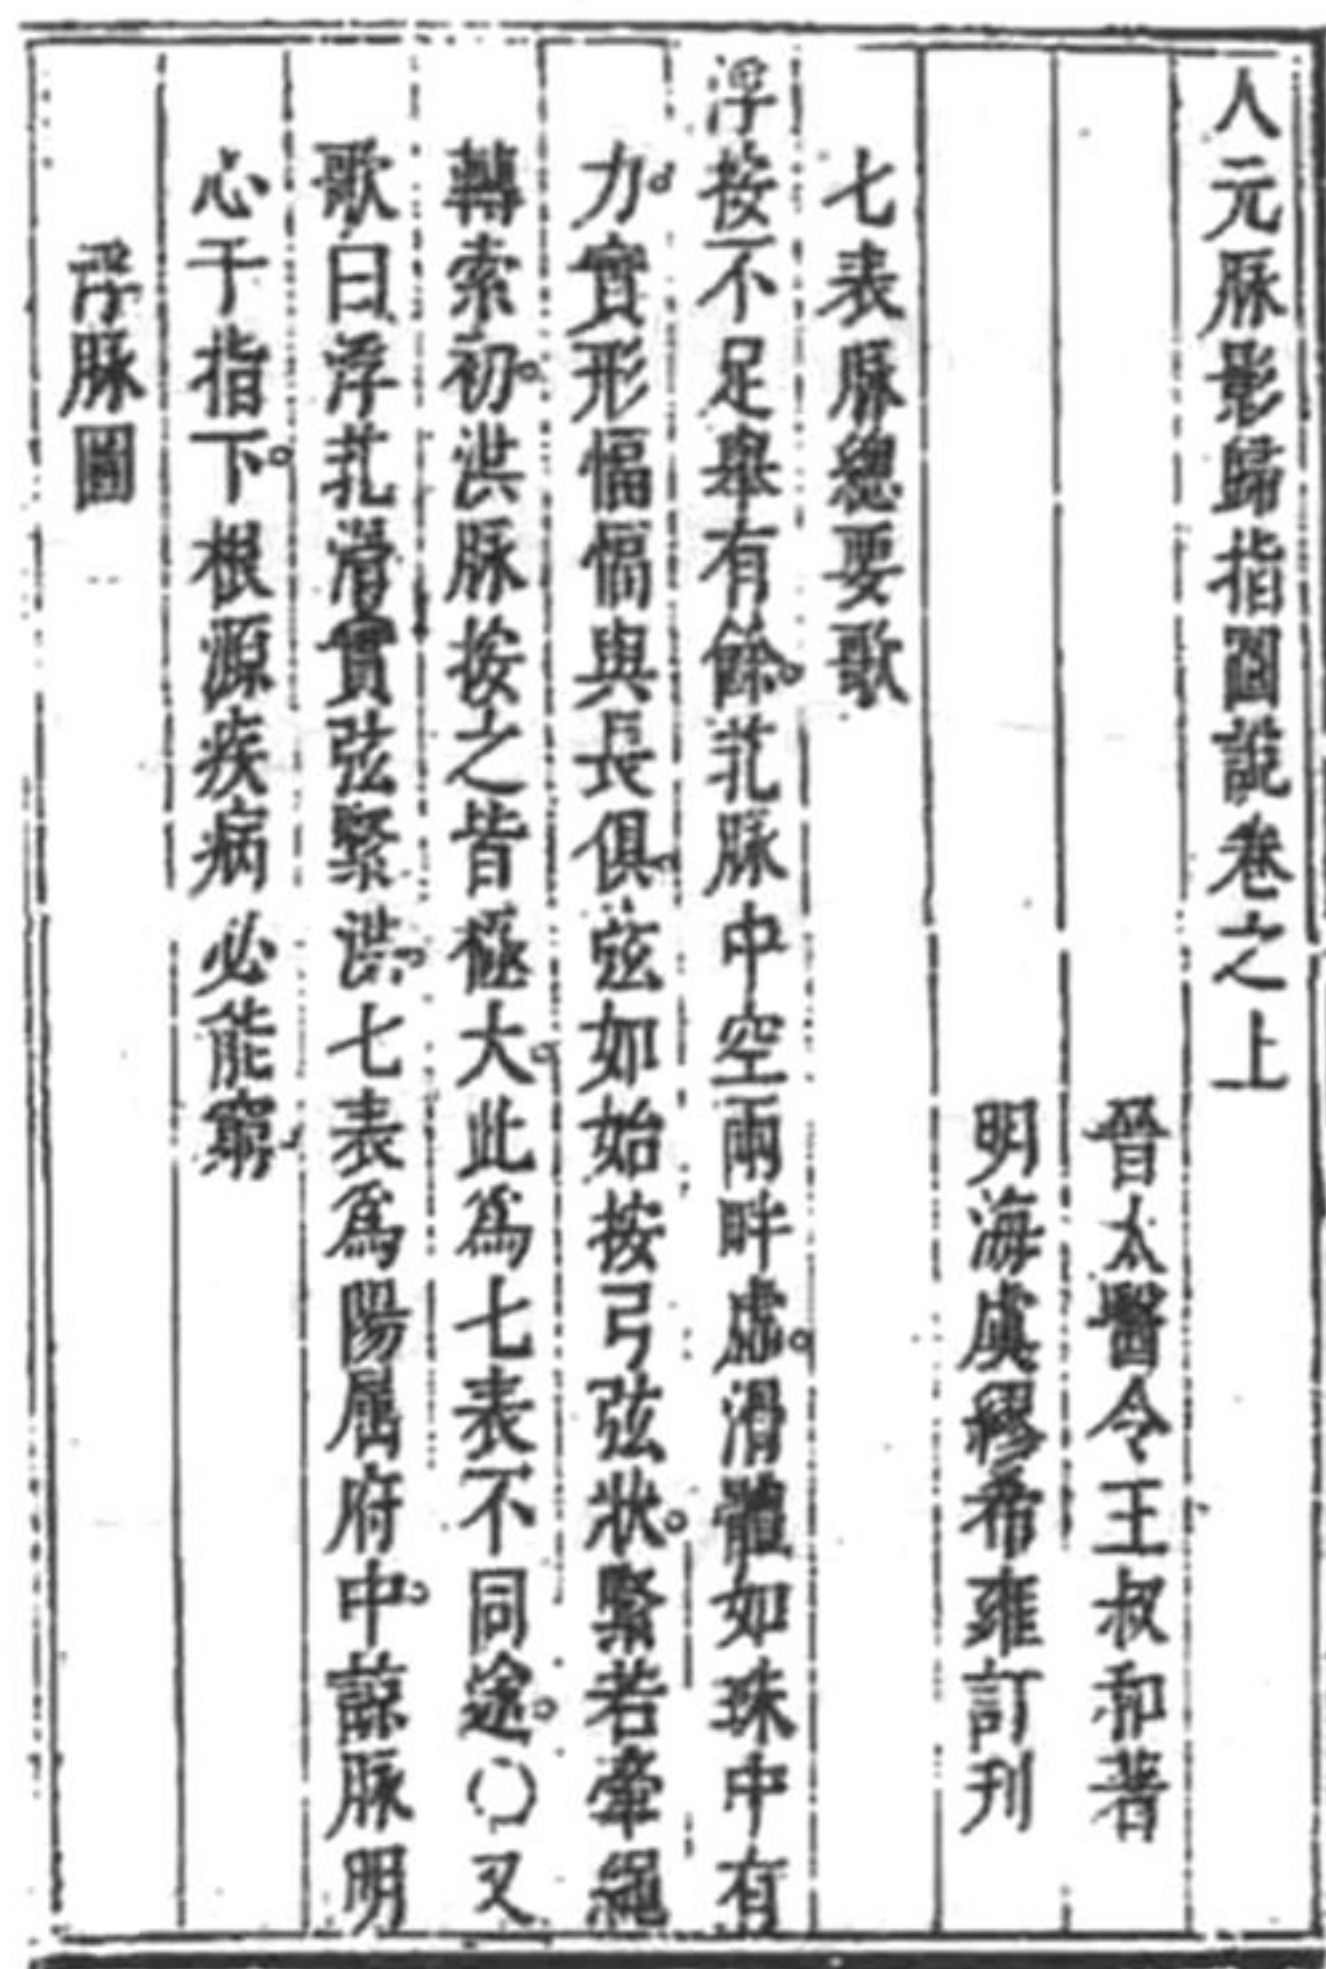 人元脉影歸指圖說卷之上
晉太醫令王叔和著
明海虞繆希雍訂刋
七表脉總要歌
浮按不足舉有餘。芤脉中空兩畔虛。滑體如珠中有
力。實形愊愊與長俱。弦如始按弓弦狀。緊若牽繩
轉索初。洪脉按之皆極大。此爲七表不同途。○又
歌曰浮芤滑實弦緊洪。七表爲陽屬府中。諒脉明
心于指下。根源疾病必能窮。
浮脉圖